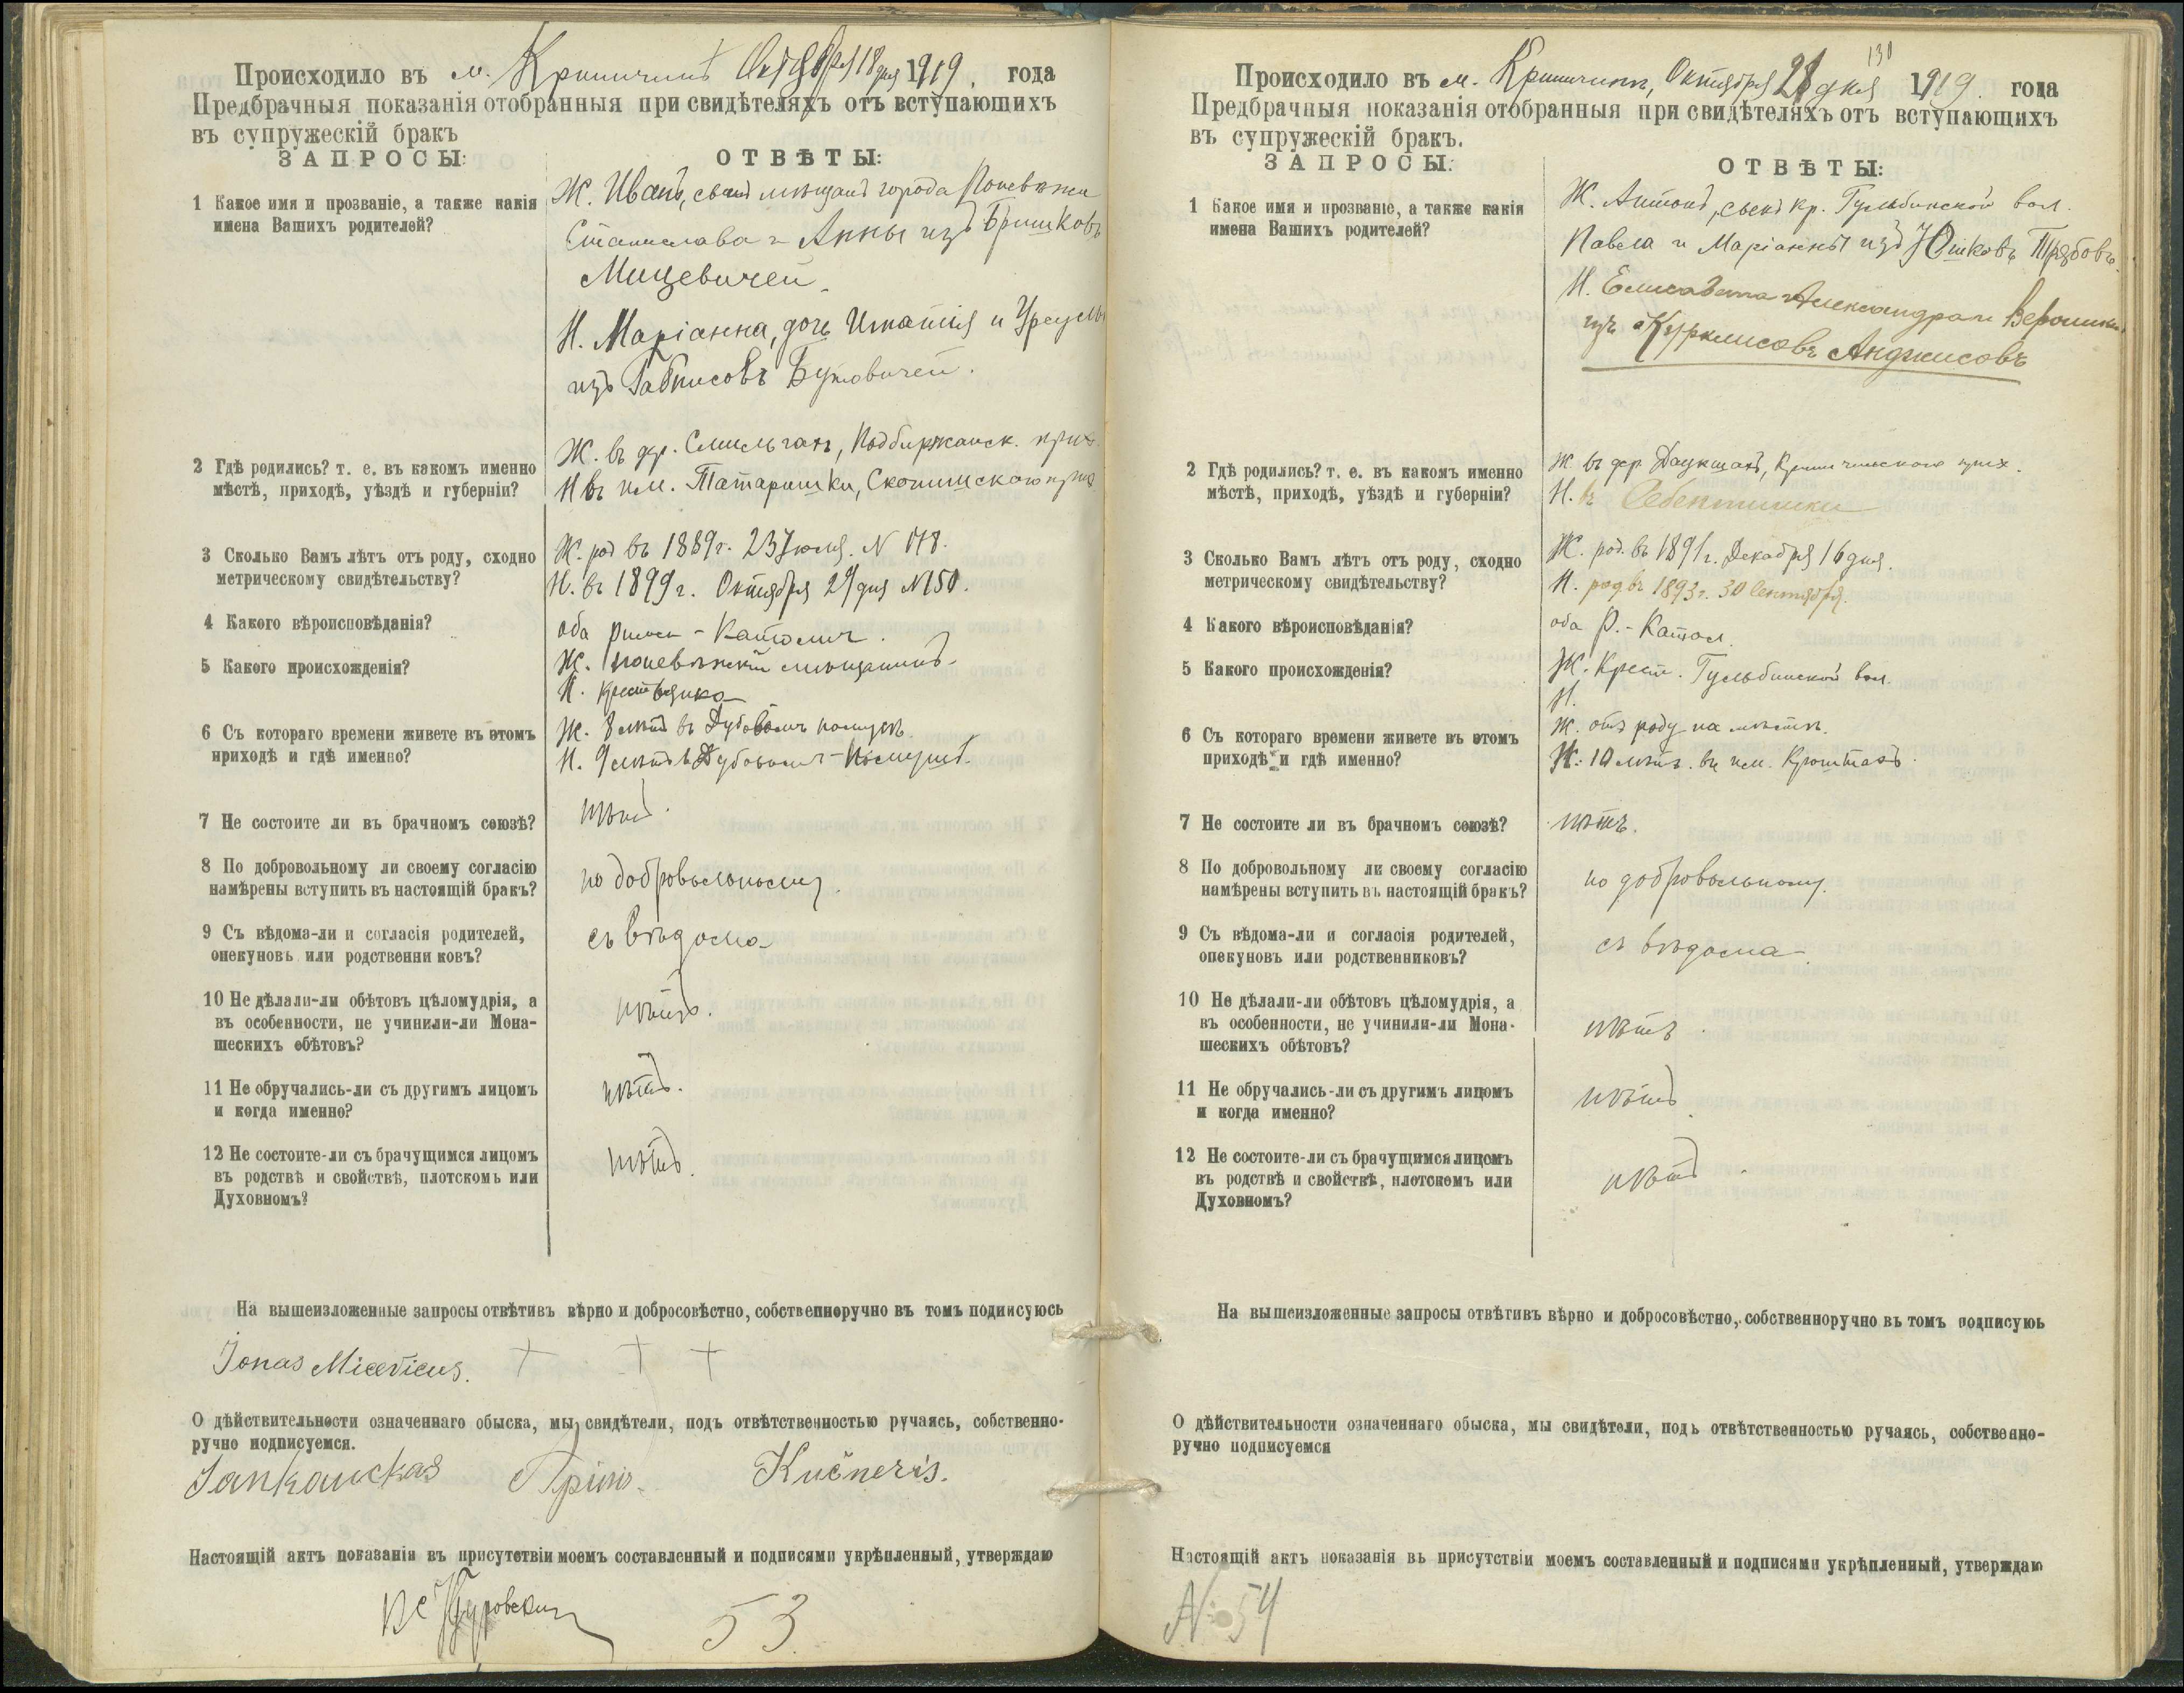 Происходило въ м. Криничинѣ Октября 18 дня 1919. года
Предбрачныя показанія отобранныя при свидѣтеляхъ отъ вступающихъ
въ супружескій бракъ
ЗАПРОСЫ:
ОТВѢТЫ:
1 Какое имя и прозваніе, а также какія
имена Вашихъ родителей?
Ж. Иванъ, сынъ мѣщанъ города Поневѣжа
Станислава и Анны изъ Бришковъ
Мицевичей.
Н. Маріанна, дочь Игнатія и Урсулы
изъ Буйовичей.
2 Гдѣ родились? т. е. въ какомъ именно
мѣстѣ, приходѣ, уѣздѣ и губерніи?
Ж. въ др. Смильгахъ, Подбиржанск. прих.
Н въ им. Татаришки, Скопишскаго прих.
3 Сколько Вамъ лѣтъ отъ роду, сходно
метрическому свидѣтельству?
Ж. род въ 1889г. 23 Іюля. N 178.
Н. въ 1899 г. Октября 29 дня N150.
4 Какого вѣроисповѣданія?
оба римск-Католич.
5 Какого происхожденія?
Ж. поневѣжскій мѣщанинъ.
Н. крестьянка
6 Съ котораго времени живете въ этомъ
приходѣ и гдѣ именно?
Ж. 8 лѣтъ въ Дубовомъ
Н. 9 лѣтъ въ Дубовомъ
7 Не состоите ли въ брачномъ союзѣ?
нѣтъ.
8 По добровольному ли своему согласію
намѣрены вступить въ настоящій бракъ?
по добровольному.
9 Съ вѣдома-ли и согласія родителей,
опекуновъ или родственни ковъ?
съ вѣдома
10 Не дѣлали-ли обѣтовъ цѣломудрія, а
въ особенности, не учинили-ли Мона-
шескихъ обѣтовъ?
нѣтъ.
11 Не обручались-ли съ другимъ лицомъ
и когда именно?
нѣтъ.
12 Не состоите-ли съ брачущимся лицомъ
въ родствѣ и свойствѣ, плотскомъ или
Духовномъ?
нѣтъ.
На вышеизложенные запросы отвѣтивъ вѣрно и добросовѣстно, собственноручно въ томъ подписуюсь
Jonas Micevicius. + + +
О дѣйствительности означеннаго обыска, мы свидѣтели, подъ отвѣтственностью ручаясь, собственно-
ручно подписуемся.
Jankauckas Kučneris.
Настоящій актъ показанія въ присутствіи моемъ составленный и подписями укрѣпленный, утверждаю
53
130
Происходило въ м. Криничинѣ, Октября 28 дня 1919. года
Предбрачныя показанія отобранныя при свидѣтеляхъ отъ вступающихъ
въ супружескій бракъ.
ЗАПРОСЫ:
ОТВѢТЫ:
1 Какое имя и прозваніе, а также какія
имена Вашихъ родителей?
Ж. Антонъ, сынъ кр. Гульбинской вол.
Павла и Маріанны изъ Юшковъ
Н. Елисавета Александра и Вероники
изъ Курклисовъ Анджисовъ
2 Гдѣ родились? т. е. въ какомъ именно
мѣстѣ, приходѣ, уѣздѣ и губерніи?
Ж въ дер. Даукшахъ, Криничинскаго прих.
Н. въ
3 Сколько Вамъ лѣтъ отъ роду, сходно
метрическому свидѣтельству?
Ж. род. въ 1891г. Декабря 16 дня.
Н. род въ 1893г. 30 Сентября.
4 Какого вѣроисповѣданія?
оба Р.-Катол.
5 Какого происхожденія?
Ж. Крест. Гульбинской вол.
Н.
6 Съ котораго времени живете въ этомъ
приходѣ и гдѣ именно?
Ж. отъ роду на мѣстѣ.
Н. 10 лѣтъ. въ им. Крюштахъ.
7 Не состоите ли въ брачномъ союзѣ?
нѣтъ.
8 По добровольному ли своему согласію
намѣрены вступить въ настоящій бракъ?
по добровольному.
9 Съ вѣдома-ли и согласія родителей,
опекуновъ или родственниковъ?
съ вѣдома.
10 Не дѣлали-ли обѣтовъ цѣломудрія, а
въ особенности, не учинили-ли Мона-
шескихъ обѣтовъ?
нѣтъ.
11 Не обручались-ли съ другимъ лицомъ
и когда именно?
нѣтъ.
12 Не состоите-ли съ брачущимся лицомъ
въ родствѣ и свойствѣ, плотскомъ или
Духовномъ?
нѣтъ.
На вышеизложенные запросы отвѣтивъ вѣрно и добросовѣстно, собственноручно въ томъ подписуюь
О дѣйствительности означеннаго обыска, мы свидѣтели, подъ отвѣтственностью ручаясь, собственно-
ручно подписуемся
Настоящій актъ показанія въ присутствіи моемъ составленный и подписями укрѣпленный, утверждаю
N 54